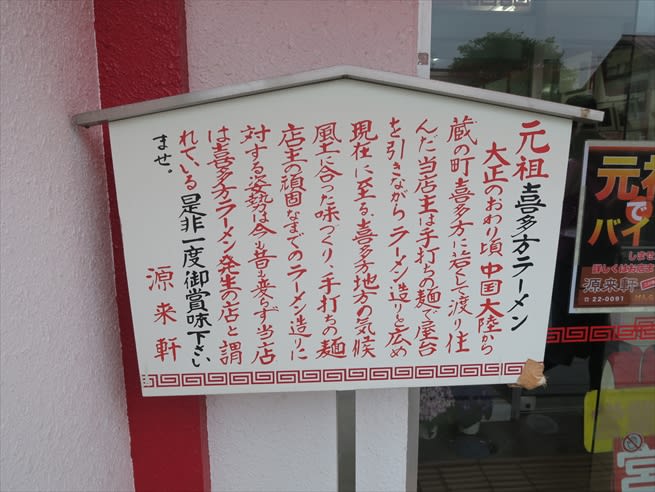 元祖 喜多方ラーメン
大正のおわり頃 中国大陸から
蔵の町喜多方に若して渡り住
んだ当店主は手打ちの麺で屋台
を引きながら ラーメン造りを広め
現在に至る、喜多方地方の気候
風土に合った味づくり、手打ちの麺
店主の頑固なまでのラーメン造りに
対する姿勢は今も昔も変らず当店
は喜多方ラーメン発生の店と謂
れている 是非一度御賞味下さい
ませ。
源来軒
元祖
で
バイ
しませ
詳しくはお店
源来軒
22-0091